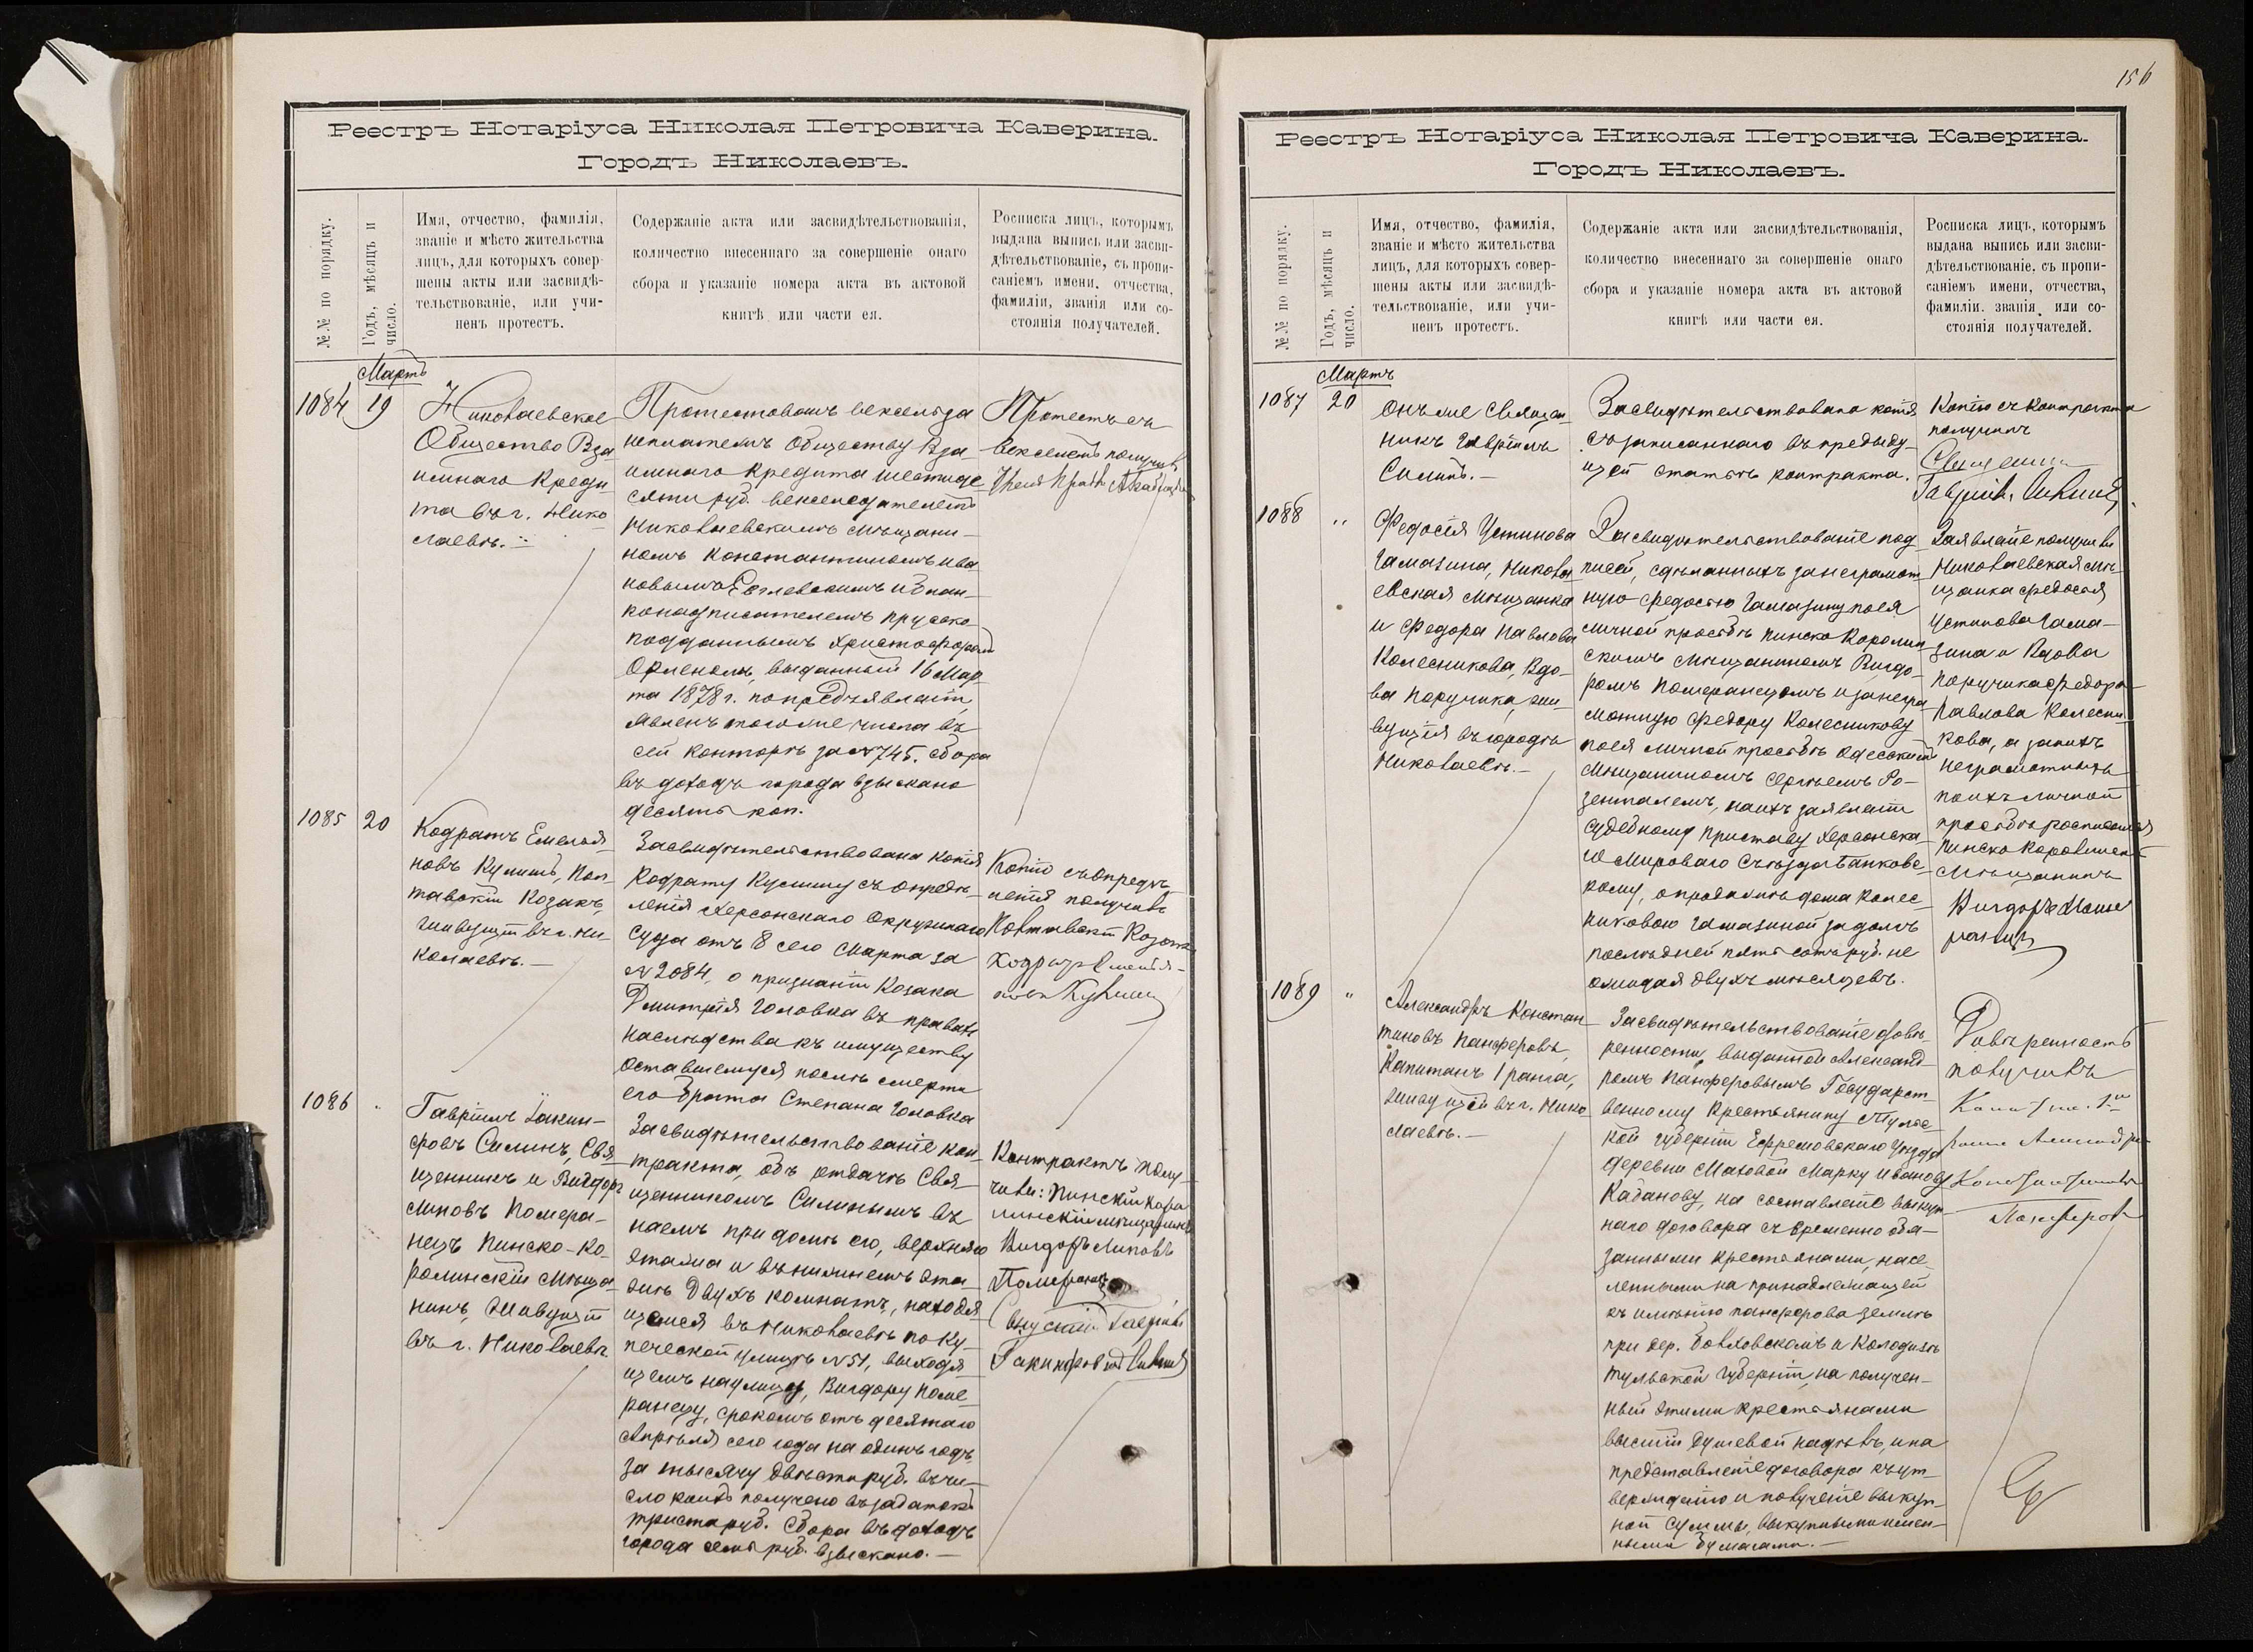 156
Реестръ Нотаріуса Николая Петровича Каверина.
Городъ Николаевъ.
№№ по порядку.
Годъ, мѣсяцъ и
число.
Имя, отчество, фамилія,
званіе и мѣсто жительства
лицъ, для которыхъ совер-
шены акты или засвидѣ-
тельствованіе, или учи-
ненъ протестъ.
Содержаніе акта или засвидѣтельствованія,
количество внесеннаго за совершеніе онаго
сбора и указаніе номера акта въ актовой
книгѣ или части ея.
Росписка лицъ, которымъ
выдана выпись или засви-
дѣтельствованіе, съ пропи-
саніемъ имени, отчества,
фамиліи, званія или со-
стоянія получателей.
Мартъ
1084 19
Николаевское
Общество Вза
имнаго Креди
та въ г. Нико
лаевѣ.
Протестованъ вексель за
неплатежъ Обществу Вза
имнаго Кредита шестиде
сяти руб. векселедателемъ
Николаевскимъ мѣщани-
номъ Константиномъ Ива
новымъ и блан-
конадписателемъ прусско
подданнымъ Христофоромъ
выданный 16 Мар
та 1878 г. по предъявленіи,
явленъ того же числа въ
сей конторѣ за № 745. Сбора
въ доходъ города взыскано
десять коп.
Протестъ съ
векселемъ получилъ
1085 20
Кодратъ Емелья
новъ Кулишъ, Пол
тавскій Козакъ,
живущій въ г. Ни-
колаевѣ.-
Засвидѣтельствована копія
Кодрату Кулишу съ опредѣ-
ленія Херсонскаго Окружнаго
Суда отъ 8 сего Марта за
№ 2084, о признаніи Козака
Дмитрія Головка въ правахъ
наслѣдства къ имуществу
оставшемуся послѣ смерти
его брата Степана Головка
Копію съ опредѣ-
ленія получилъ
Полтавскій Козакъ
Кодратъ Емелья-
новъ Кулишъ
1086
Гавріилъ Іакин-
фовъ Силинъ, Свя
щенникъ и Вигдоръ
Липовъ Помера-
нецъ Пинско-Ка-
ролинскій Мѣща
нинъ, живущій
въ г. Николаевѣ
Засвидѣтельствованіе кон-
тракта, объ отдачѣ Свя-
щенникомъ Силинымъ въ
наемъ при домѣ его, верхняго
этажа и въ нижнемъ эта
жѣ двухъ комнатъ, находя
щемся въ Николаевѣ по Ку-
печеской улицѣ № 51, выходя
щемъ на улицу, Вигдору Поме
ранецу, срокомъ отъ десятаго
Апрѣля сего года на одинъ годъ,
за тысячу двѣсти руб. въ чи-
сло коихъ получено въ задатокъ
триста руб. Сбора въ доходъ
города семь руб. взыскано.-
Контрактъ полу-
чили: Пинскій Каро
линскій мѣщанинъ
Вигдоръ Липовъ
Померанецъ
Священникъ Гавріилъ
Іакинфовъ Силинъ
Реестръ Нотаріуса Николая Петровича Каверина.
Городъ Николаевъ.
№№ по порядку.
Годъ, мѣсяцъ и
число.
Имя, отчество, фамилія,
званіе и мѣсто жительства
лицъ, для которыхъ совер-
шены акты или засвидѣ-
тельствованіе, или учи-
ненъ протестъ.
Содержаніе акта или засвидѣтельствованія,
количество внесеннаго за совершеніе онаго
сбора и указаніе номера акта въ актовой
книгѣ или части ея.
Росписка лицъ, которымъ
выдана выпись или засви-
дѣтельствованіе, съ пропи-
саніемъ имени, отчества,
фамиліи, званія или со-
стоянія получателей.
Мартъ
1087 20
Онъ же Священ
никъ Гавріилъ
Силинъ.-
Засвидѣтельствована копія
съ записаннаго въ предыду-
щей статьѣ контракта.
Копію съ контракта
получилъ
Священникъ
Гавріилъ Силинъ
1088 "
Федосія Устинова
Гамазина, Никола
евская мѣщанка
и Федора Павлова
Колесникова, Вдо-
ва Поручика, жи-
вущія въ городѣ
Николаевѣ.-
Засвидѣтельствованіе под-
писей, сдѣланныхъ за неграмот
ную Федосію Гамазину по ея
личной просьбѣ Пинско Каролин
скимъ мѣщаниномъ Вигдо-
ромъ Померанцомъ и за негра
мотную Федору Колесникову
по ея личной просьбѣ Одесскимъ
Мѣщаниномъ Сергѣемъ Ро-
зенталемъ, на ихъ заявленіи
Судебному Приставу Херсонска
го Мироваго Съѣзда Банковс-
кому, о продажѣ дома Колес-
никовою Гамазиной за долгъ
послѣдней пять сотъ руб. не
ожидая двухъ мѣсяцевъ.
Заявленіе получили
Николаевская мѣ-
щанка Федосія
Устинова Гама-
зина и Вдова
Поручика Федора
Павлова Колесни-
кова, а за нихъ
неграмотныхъ
по ихъ личной
просьбѣ росписался
Пинско Каролинскій
Мѣщанинъ
Вигдоръ Поме
ранецъ
1089 "
Александръ Констан-
тиновъ Панферовъ,
Капитанъ 1 ранга,
живущій въ г. Нико
лаевѣ.-
Засвидѣтельствованіе довѣ-
ренности, выданной Александ
ромъ Панферовымъ Государст-
венному Крестьянину Тульс-
кой губерніи Ефремовскаго Уѣзда
деревни Маховой Марку Иванову
Кабанову, на составленіе выкуп-
наго договора съ временно обя-
занными крестьянами, насе-
ленными на принадлежащей
къ имѣнію Панферова землѣ
при дер. и Колодязѣ
Тульской губерніи, на получен-
ный этими крестьянами
высшій душевой надѣлъ, и на
представленіе договора къ ут-
вержденію и полученіе выкуп-
ной суммы, выкупными имен-
ными бумагами.-
Довѣренность
получилъ
Капитанъ 1го
ранга Александръ
Константиновъ
Панферовъ